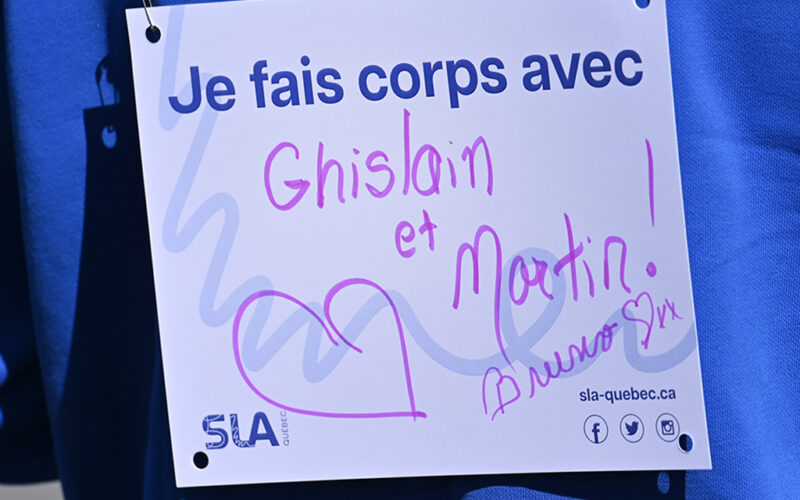 Je fais corps avec
Ghislain
et
Martin!
Bruno xx
sla-quebec.ca
SLA
QUÉBEC